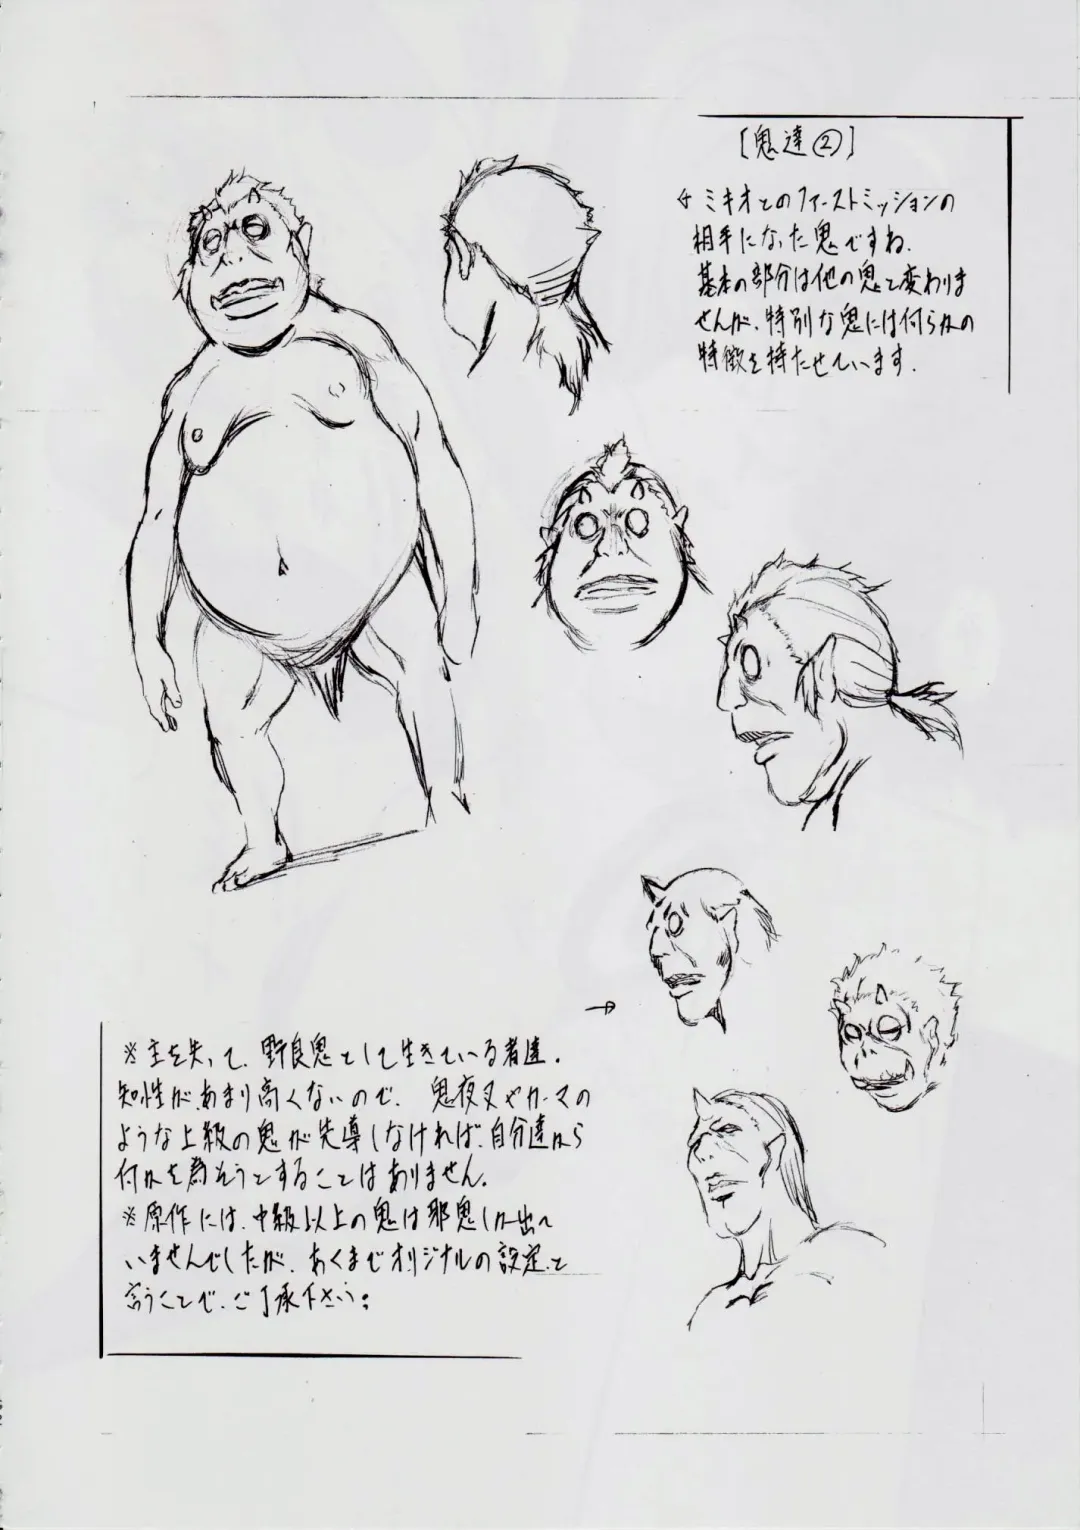 [鬼達②]
← ミキオとのファーストミッションの
相手になった鬼ですね.
基本の部分は他の鬼と変わりま
せんが、特別な鬼には何らかの
特徴を持たせています.
→
※主を失って、野良鬼として生きている者達.
知性があまり高くないので、鬼夜叉やカーマの
ような上級の鬼が先導しなければ、自分達から
何かを為そうとすることはありません。
※原作には、中級以上の鬼は邪鬼しか出て
いませんでしたが、あくまでオリジナルの設定と
言うことで、ご了承下さい。